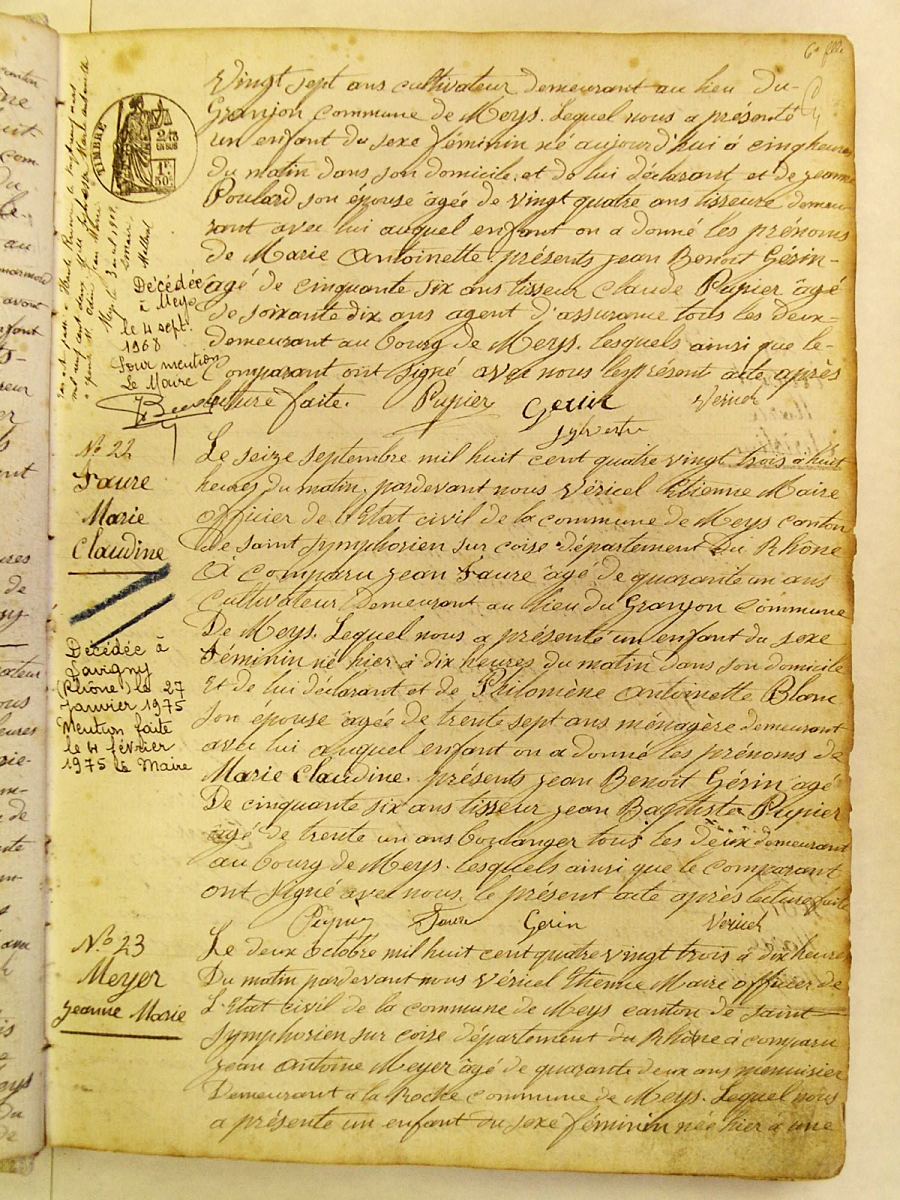 6e flle
vingt sept ans cultivateur demeurant au lieu du-
Granjon commune de Meys. Lequel nous a présenté
un enfant du sexe féminin né aujourd'hui à cinq heures
du matin dans son domicile et de lui déclarant et de Jeanne
Poulard son épouse âgée de vingt quatre ans tisseure demeu
rant avec lui auquel enfant on a donné les prénoms
de Marie Antoinette présents Jean Benoit Gérin-
âgé de cinquante six ans tisseur Claude Pupier âgé
de soixante dix ans agent d'assurance tous les deux-
demeurant au bourg de Meys. lesquels ainsi que le-
Comparant ont signé avec nous les présent acte après
lecture faite. Pupier Gerin Vericel
TIMBRE
2/10
EN SUS
1F
50C
Maire
Décédée
à Meys
le 4 sept.
1968
Pour mention
Le Maire
No 22
Faure
Marie
Claudine
Le seize septembre mil huit cent quatre vingt trois à huit
heures du matin, pardevant nous Véricel Etienne Maire
officier de l'Etat civil de la commune de Meys canton
de saint symphorien sur coise département du Rhône
A comparu Jean Faure âgé de quarante un ans
Cultivateur demeurant au lieu du Granjon commune
De Meys. Lequel nous a présenté un enfant du sexe
Féminin né hier à dix heures du matin dans son domicile
Et de lui déclarant et de Philomène Antoinette Blanc
son épouse âgée de trente sept ans ménagère demeurant
avec lui auquel enfant on a donné les prénoms de
Marie Claudine. présents Jean Benoit Gérin âgé
De cinquante six ans tisseur Jean Baptiste Pupier
âgé de trente un ans boulanger tous les deux demeurant
au bourg de Meys. lesquels ainsi que le comparant
ont signé avec nous le présent acte après lecture faite
Pupier Faure Gerin Vericel
Décédée à
Savigny
(Rhône) le 27
Janvier 1975
Mention faite
le 4 février
1975 le Maire
No 23
Meyer
Jeanne Marie
Le deux octobre mil huit cent quatre vingt trois à dix heures
Du matin pardevant nous Véricel Etienne Maire officier de
L'Etat civil de la commune de Meys canton de saint
Symphorien sur coise département du Rhône à comparu
Jean Antoine Meyer âgé de quarante deux ans menuisier
Demeurant à la Roche commune de Meys. Lequel nous
a présenté un enfant du sexe féminin née hier à une